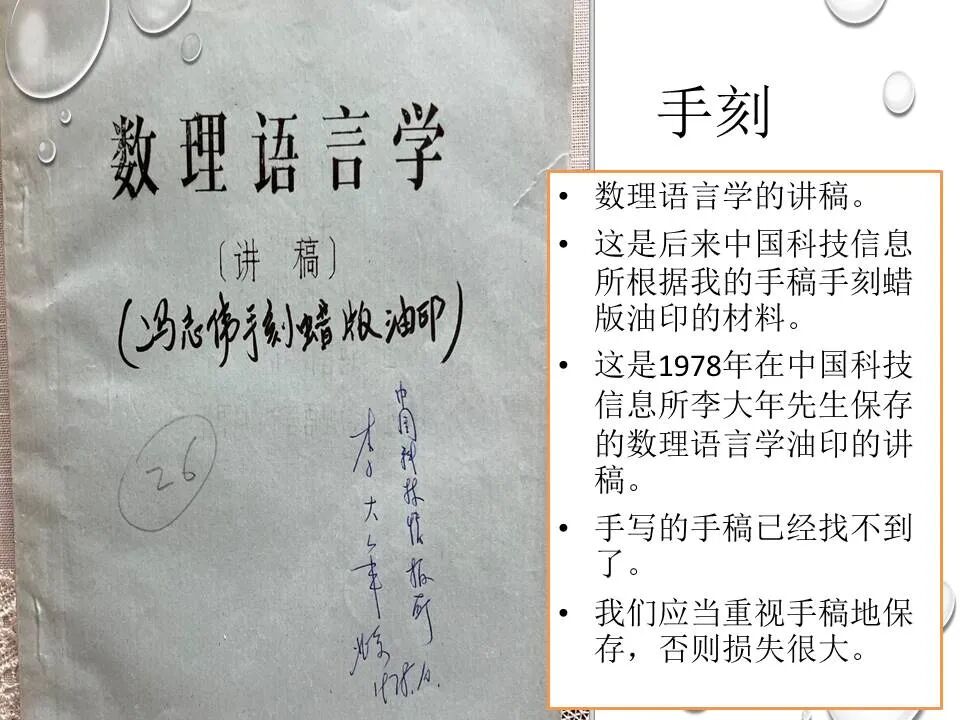 数理语言学
（讲 稿）
（冯志伟手刻蜡版油印）
26
中国科技情报所
李大年
1978.10.
手刻
• 数理语言学的讲稿。
• 这是后来中国科技信息
所根据我的手稿手刻蜡
版油印的材料。
• 这是1978年在中国科技
信息所李大年先生保存
的数理语言学油印的讲
稿。
• 手写的手稿已经找不到
了。
• 我们应当重视手稿地保
存，否则损失很大。